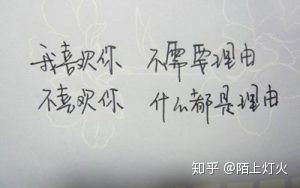 我喜欢你 不需要理由
不喜欢你 什么都是理由
知乎 @陌上灯火